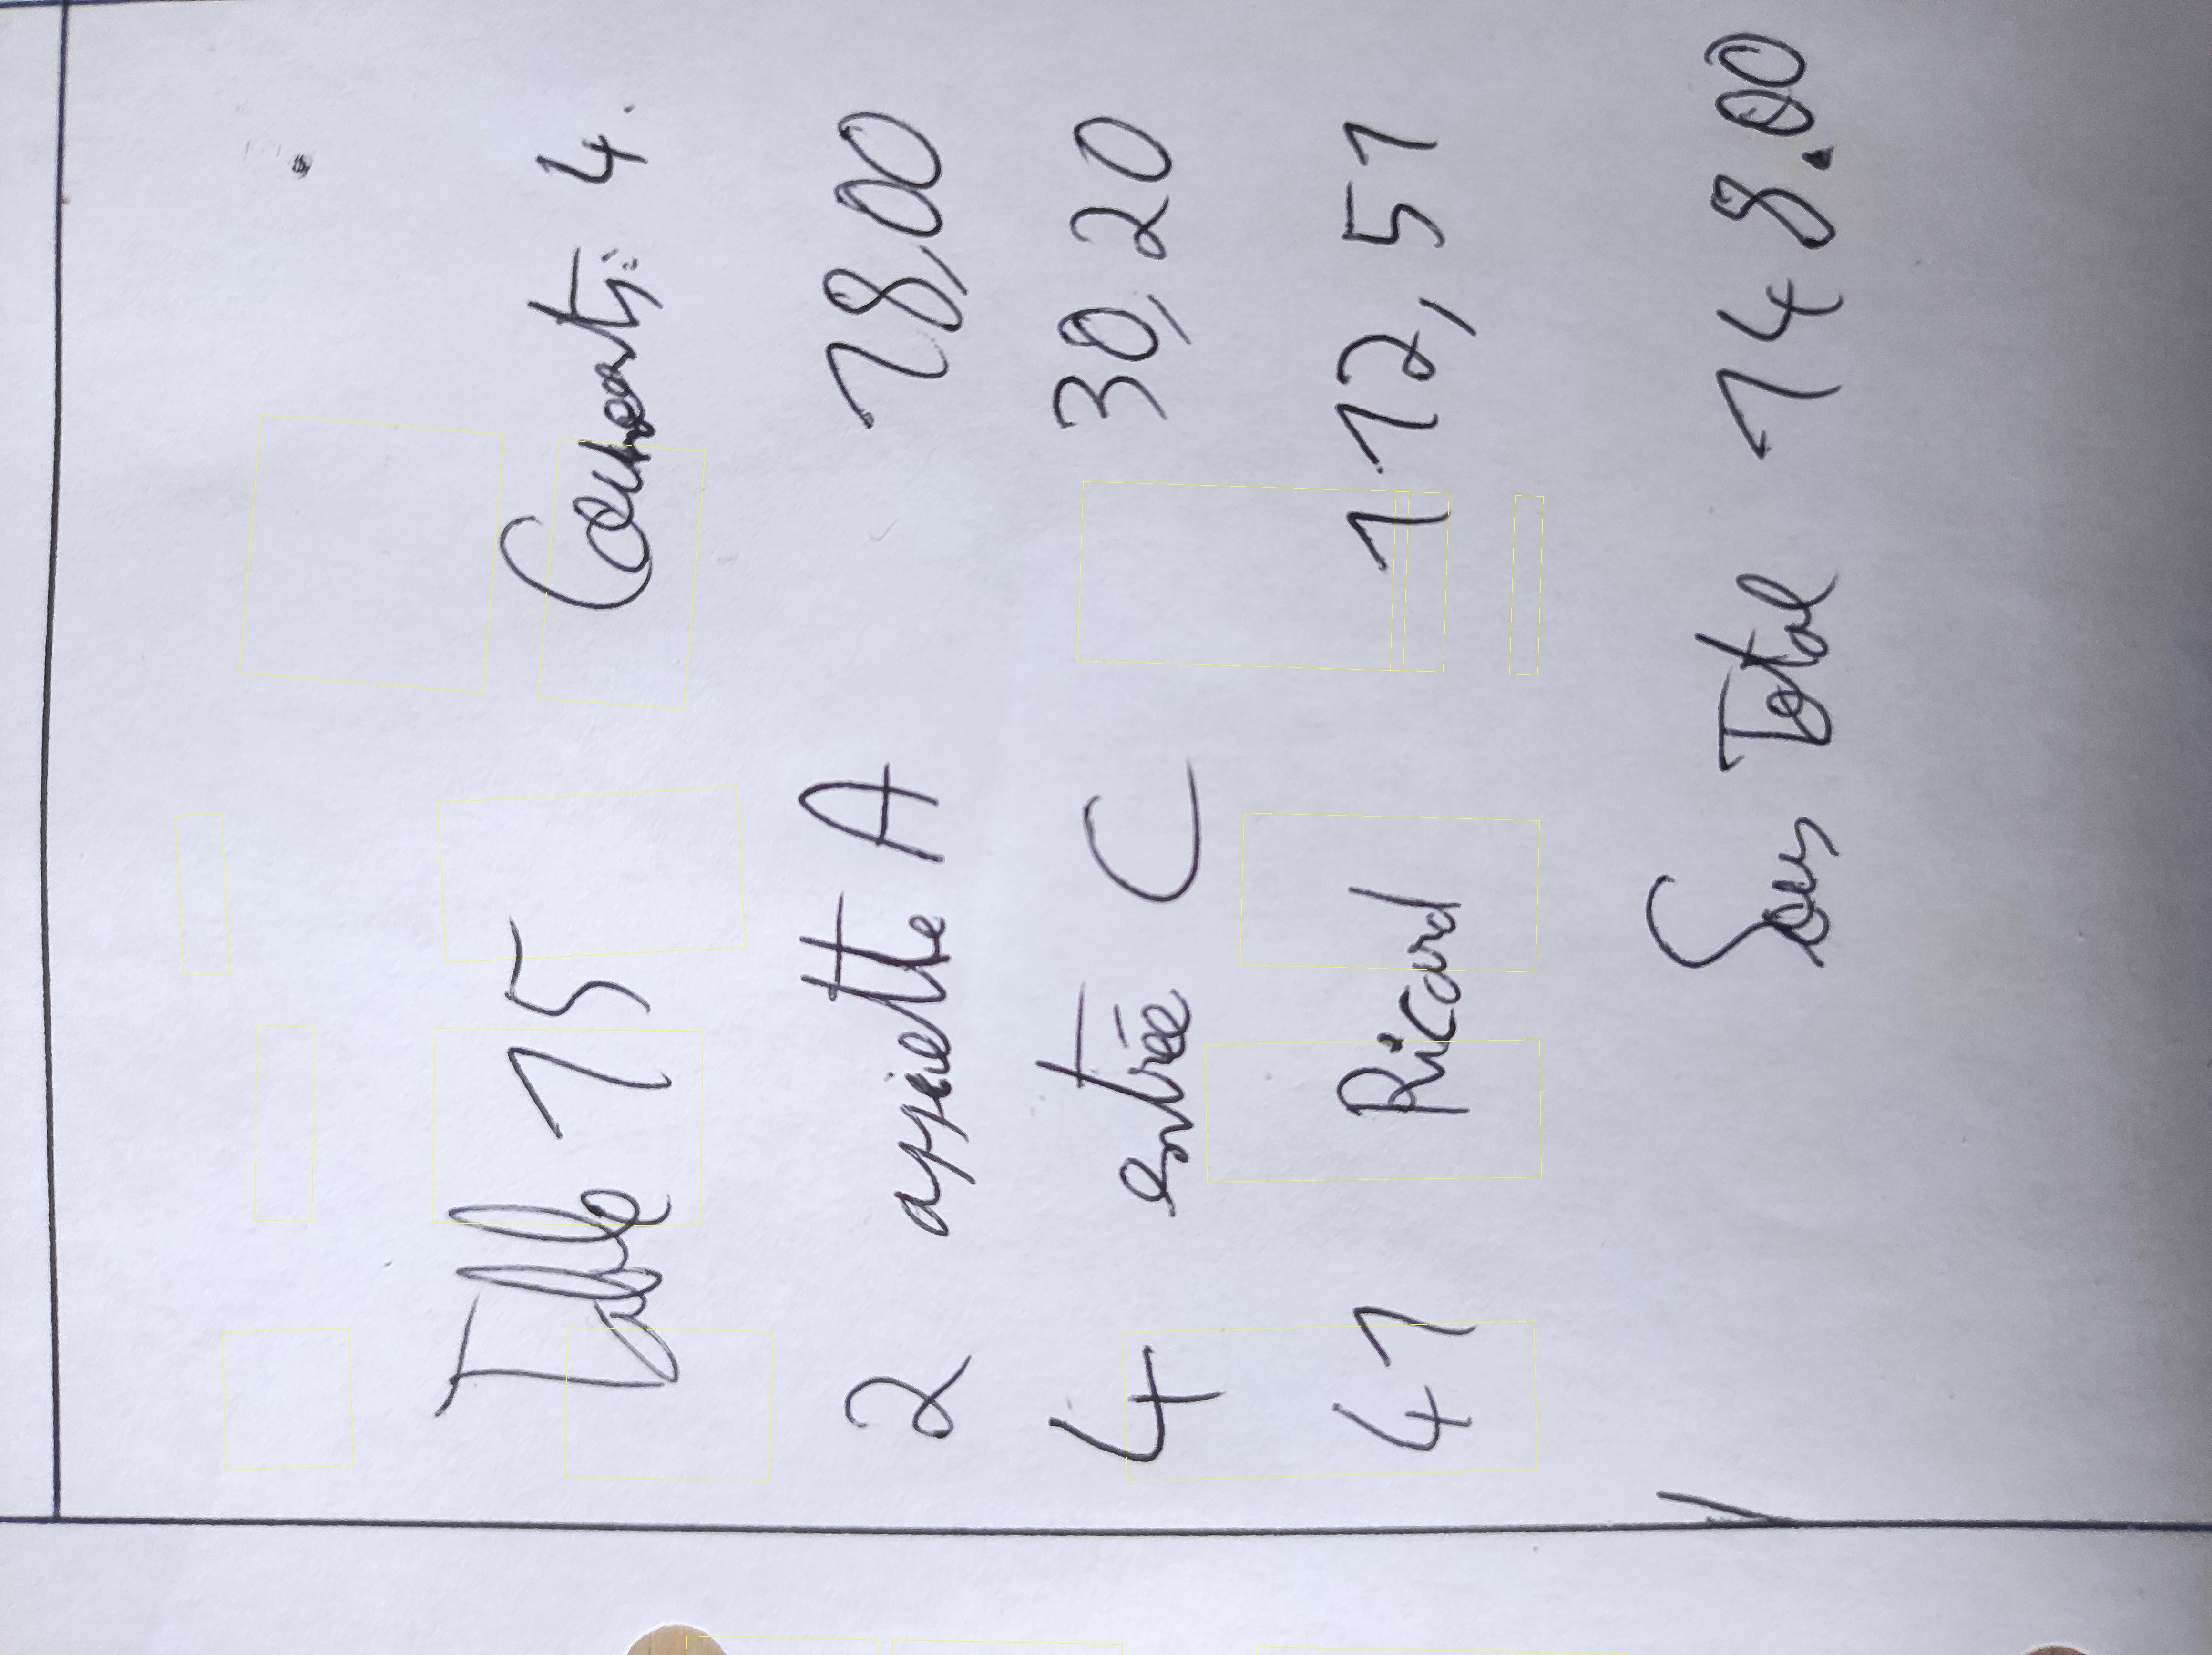 Table 15 Couverts: 4.
2 assiette A 18,00
4 entrée C 30,20
41 Ricard 112,51
Sous Total 148.00